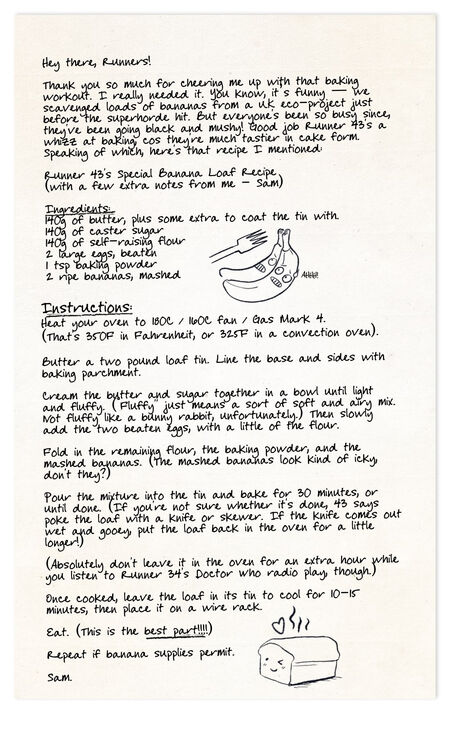 Hey there, Runners!
Thank you so much for cheering me up with that baking
workout. I really needed it. You know, it's funny — we
scavenged loads of bananas from a UK eco-project just
before the superhorde hit. But everyone's been so busy since,
they've been going black and mushy! Good job Runner 43's a
whizz at baking, cos they're much tastier in cake form.
Speaking of which, here's that recipe I mentioned:
Runner 43's Special Banana Loaf Recipe
(with a few extra notes from me - Sam)
Ingredients:
140g of butter, plus some extra to coat the tin with.
140g of caster sugar
140g of self-raising flour
2 large eggs, beaten
1 tsp baking powder
2 ripe bananas, mashed
Ahhhh!
Instructions:
Heat your oven to 180C / 160C fan / Gas Mark 4.
(That's 350F in Fahrenheit, or 325F in a convection oven).
Butter a two pound loaf tin. Line the base and sides with
baking parchment.
Cream the butter and sugar together in a bowl until light
and fluffy. ('Fluffy' just means a sort of soft and airy mix.
Not fluffy like a bunny rabbit, unfortunately.) Then slowly
add the two beaten eggs, with a little of the flour.
Fold in the remaining flour, the baking powder, and the
mashed bananas. (The mashed bananas look kind of icky,
don't they?)
Pour the mixture into the tin and bake for 30 minutes, or
until done. (If you're not sure whether it's done, 43 says
poke the loaf with a knife or skewer. If the knife comes out
wet and gooey, put the loaf back in the oven for a little
longer!)
(Absolutely don't leave it in the oven for an extra hour while
you listen to Runner 34's Doctor Who radio play, though.)
Once cooked, leave the loaf in its tin to cool for 10-15
minutes, then place it on a wire rack.
Eat. (This is the best part!!!!)
Repeat if banana supplies permit.
Sam.